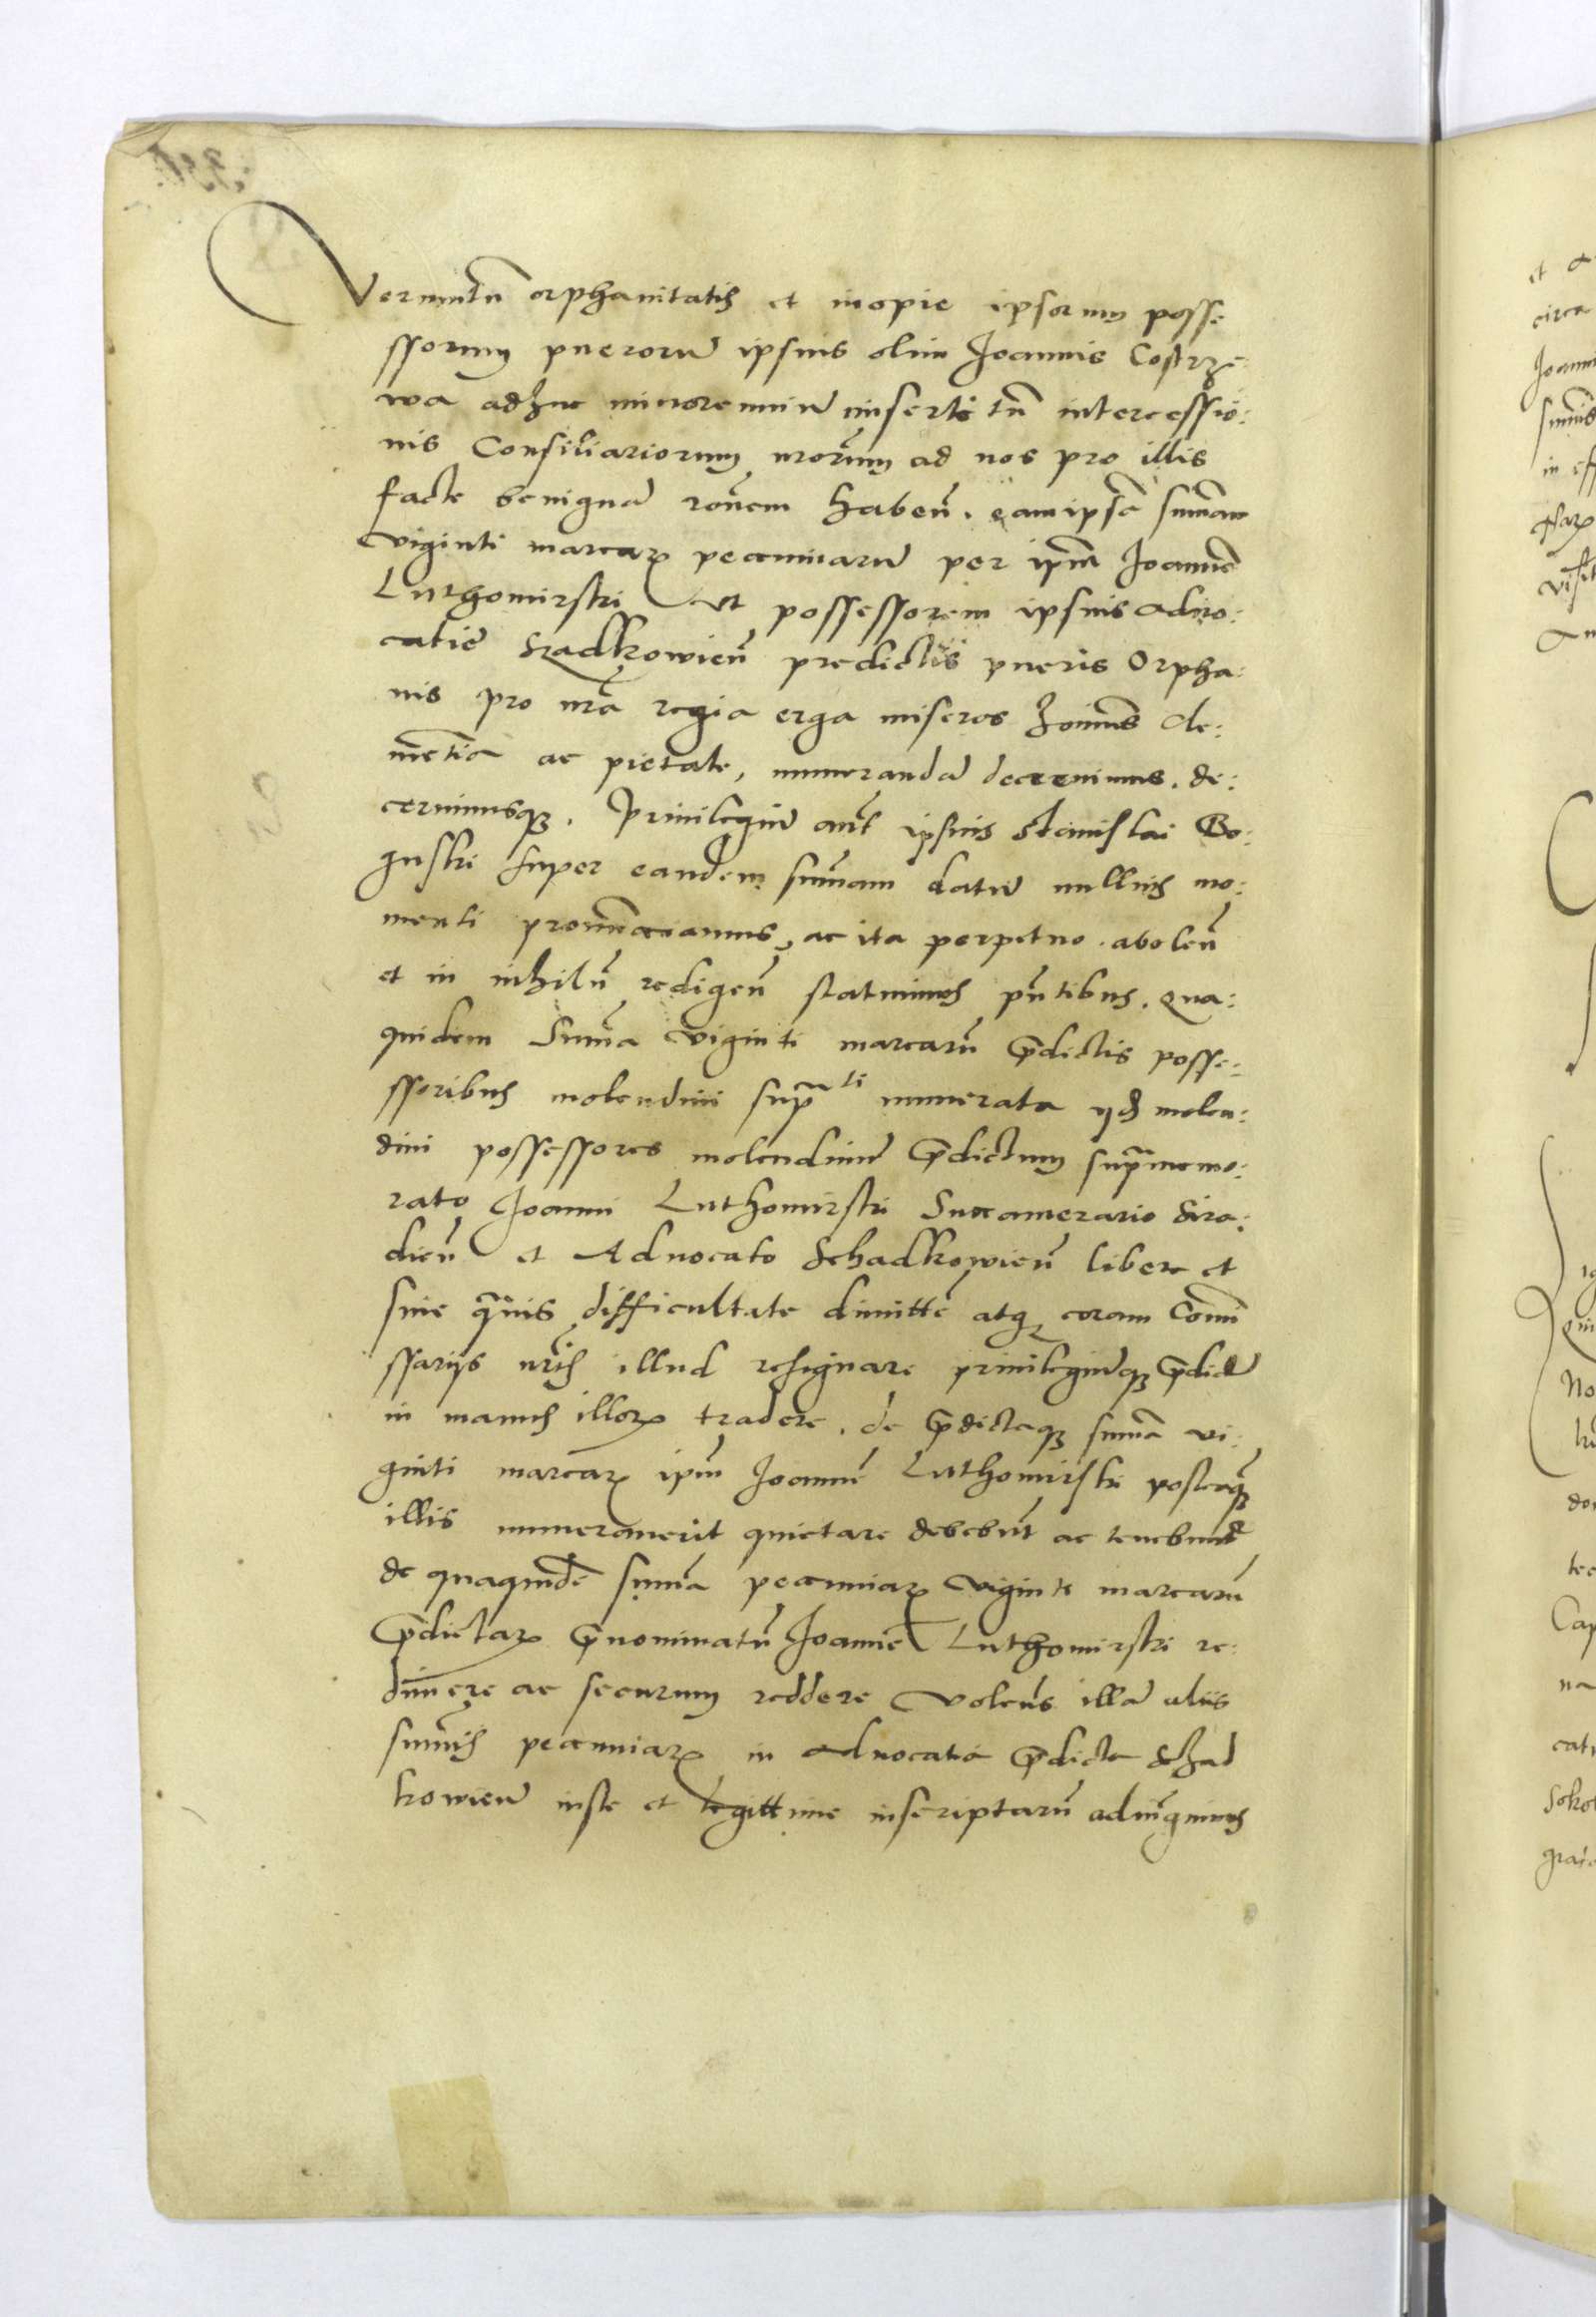 Verumtn̄ orphanitatis et inopie ipsorum posse
ssorum puerorū ipsius olim Joannis Costrze
wa adhuc minorenniū miserti tn̄ intercessio:
nis Consiliariorum nr̄orum ad nos pro illis
facte benignā rōnem haben̄. eamipsā sum̄am
viginti marcarꝝ pecuniarū per ipm̄ Joannē
Luthomirski vt possessorem ipsius aduo:
catie Szadkowien̄ predictis pueris Orpha:
nis pro nr̄a regia erga miseros hoīnes cle:
mētia ac pietate, numerandā decreuimus. de:
cernimusqꝫ. Priuilegiū aūt ipsius Stanislai Bo:
guski super eandem sum̄am datū nullius mo:
menti pronūnciamus, ac ita perpetuo. abolen̄
et in nihilū redigen̄ statuimus pn̄tibus. Qua:
quidem Sum̄a viginti marcarū p̄dictis posse:
ssoribus molendini supra ti numerata ijd molen:
dini possessores molendinū p̄dictum supramemo:
rato Joanni Luthomirski Succamerario Sira:
dien̄ et Aduocato Schadkowien̄ libere et
sine quauis difficultate dimitte atqꝫ coram Com̄i
ssarijs nr̄is illud resignare priuilegiūqꝫ p̄dictū
in manus illorꝝ tradere. de p̄dictaqꝫ sum̄a vi:
ginti marcarꝝ ipm̄ Joannē Luthomirski posteaqꝫ
illis numerauerit quietare debebūt ac tenebunt
de quaquidē sum̄a pecuniarꝝ viginti marcarū
p̄dictarꝝ p̄nominatū Joannē Luthomirski re:
dimere ac securum reddere volens illā aliis
sum̄is pecuniarꝝ in aduocatia p̄dicta Schad
kowien̄ iuste et legittime inscriptarū adiūgimus
et
circa
Joanni
in
Cap
na